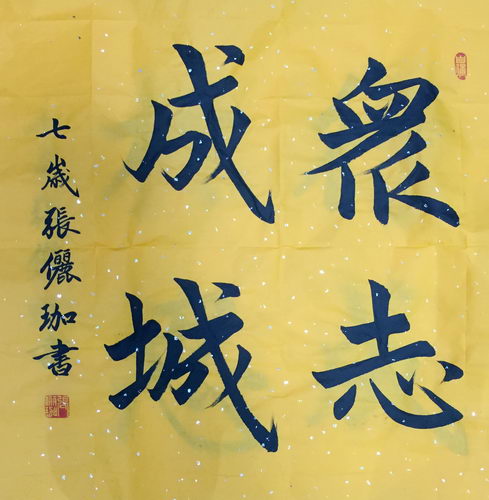 眾志
成城
七歲張儷珈書